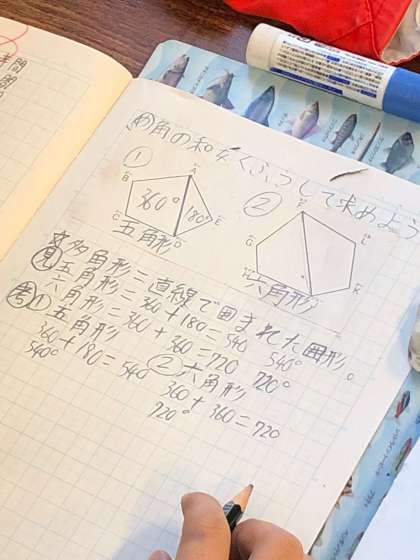 内角の和をくふうして求めよう
①
A
B
E
360°
180°
C
D
五角形
②
F
G
E
六角形
K
多角形=直線で囲まれた図形。
見 五角形=360+180=540 540°
六角形=360+360=720 720°
考 ① 五角形
360+180=540
540°
② 六角形
360+360=720
720°